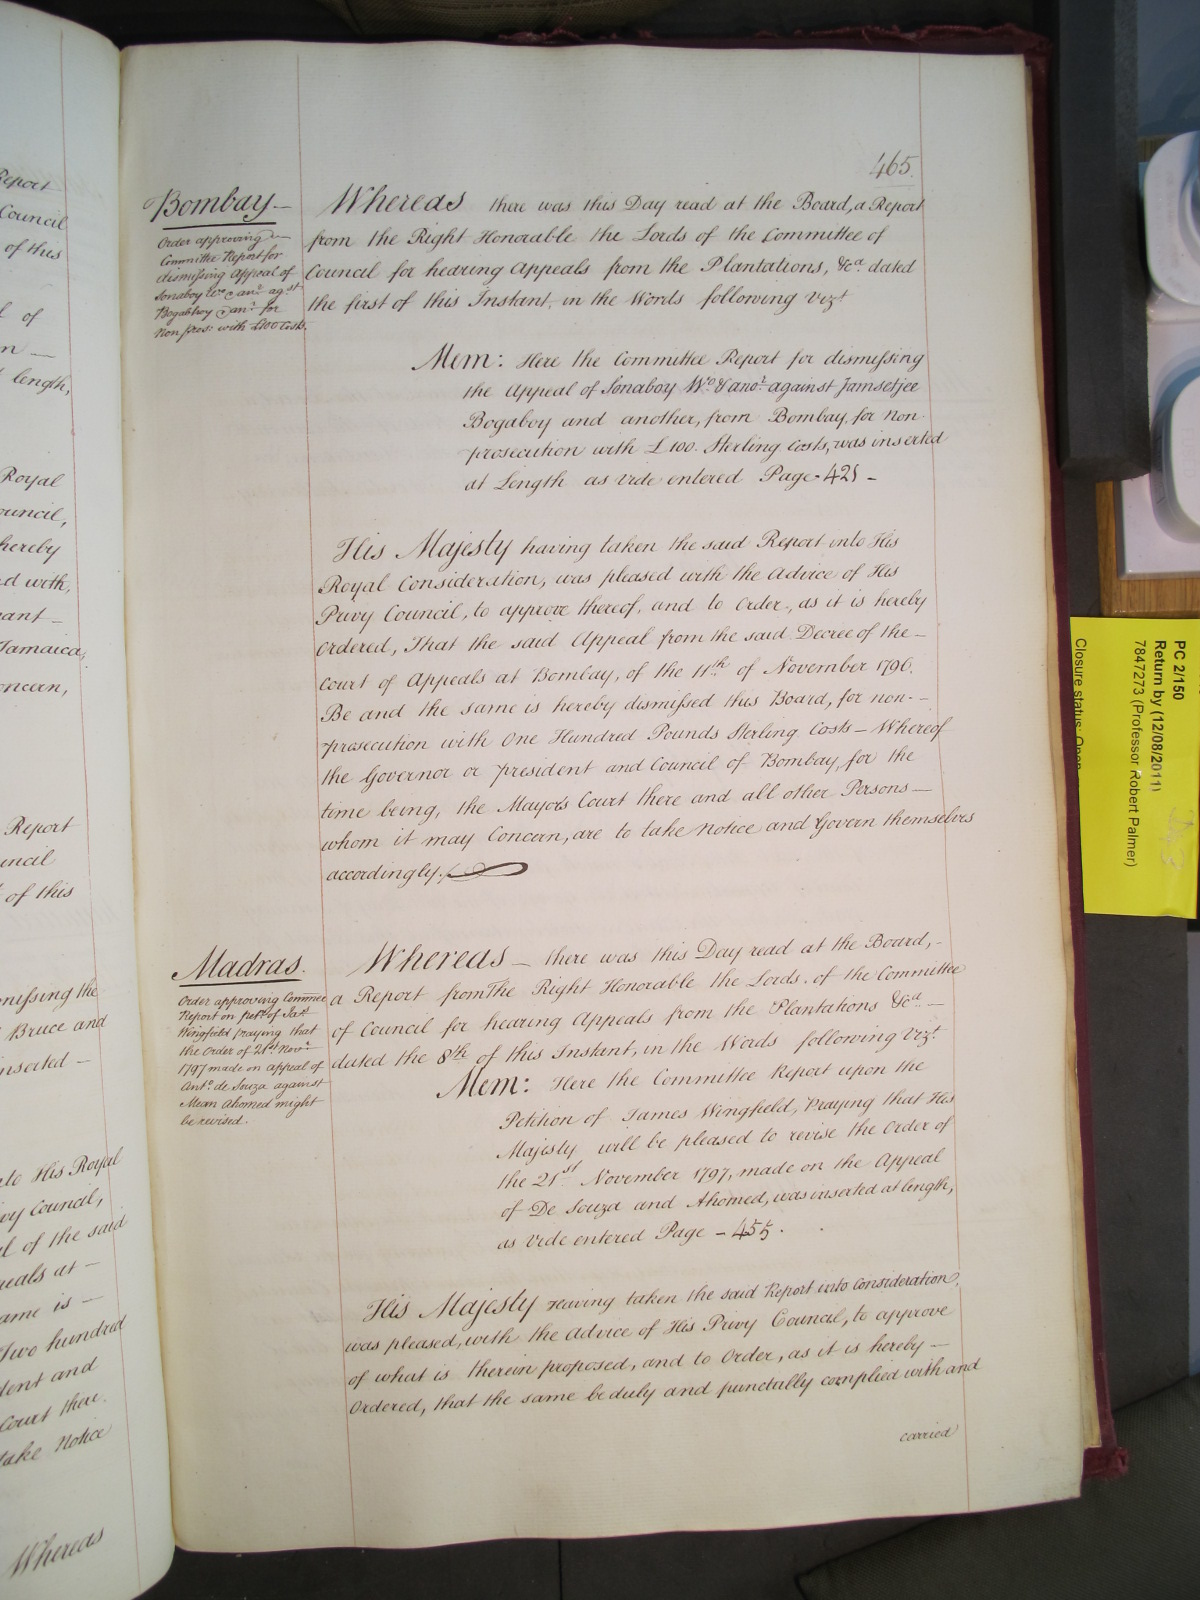 465.
Bombay—
Order approving
Committee Report for
dismissing Appeal of
Sonaboy Wo & anr. agst
Bogabhoy & anr. for
Non pros: with £100 Costs.
Whereas there was this Day read at the Board, a Report
from the Right Honorable the Lords of the Committee of
Council for hearing Appeals from the Plantations, &ca. dated
the first of this Instant, in the Words following Vizt
Mem: Here the Committee Report for dismissing
the Appeal of Sonaboy Wo. & anor. against Jamsetjee
Bogaboy and another, from Bombay, for non-
prosecution with £100. Sterling Costs, was inserted
at Length as vide entered Page - 421 -
His Majesty having taken the said Report into His
Royal Consideration, was pleased with the Advice of His
Privy Council, to approve thereof, and to Order, as it is hereby
Ordered, That the said Appeal from the said Decree of the—
Court of Appeals at Bombay, of the 11th. of November 1796.
Be and the same is hereby dismissed this Board, for non-
prosecution with One Hundred Pounds Sterling Costs — Whereof
the Governor or President and Council of Bombay, for the
time being, the Mayor's Court there and all other Persons—
whom it may Concern, are to take Notice and Govern themselves
accordingly.
Madras.
Order approving Commee
Report on petn. of Jas.
Wingfield praying that
the Order of 21st Novr.
1797 made on appeal of
Anto. de Souza against
Mean Ahomed might
be revised.
Whereas — there was this Day read at the Board,-
a Report from The Right Honorable the Lords of the Committee
of Council for hearing Appeals from the Plantations &ca.—
dated the 8th of this Instant, in the Words following Vizt.
Mem: Here the Committee Report upon the
Petition of James Wingfield, Praying that His
Majesty will be pleased to revise the Order of
the 21st November 1797, made on the Appeal
of De Souza and Ahomed, was inserted at length,
as Vide entered Page - 455.
His Majesty having taken the said Report into Consideration,
was pleased, with the Advice of His Privy Council, to approve
of what is therein proposed, and to Order, as it is hereby—
Ordered, that the same be duly and punctually complied with and
carried
Report
Council
of this
of
length,
Royal
Council,
hereby
with,
Jamaica,
Concern,
Report
Council
of this
the
Bruce and
inserted —
into His Royal
Privy Council,
of the said
at —
same is —
Two hundred
and
Court there.
take Notice
Whereas
PC 2/150
Return by (12/08/2011)
7847273 (Professor Robert Palmer)
Closure status: Open